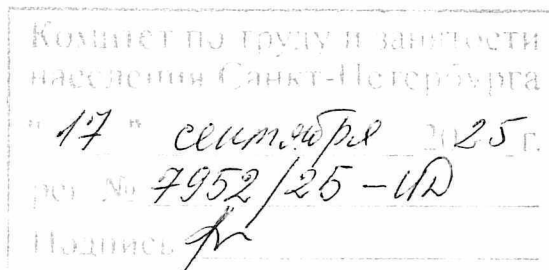 Комитет по труду и занятости
населения Санкт-Петербурга
" 17 " сентября 2025 г.
рег. № 7952/25-ИД
Подпись